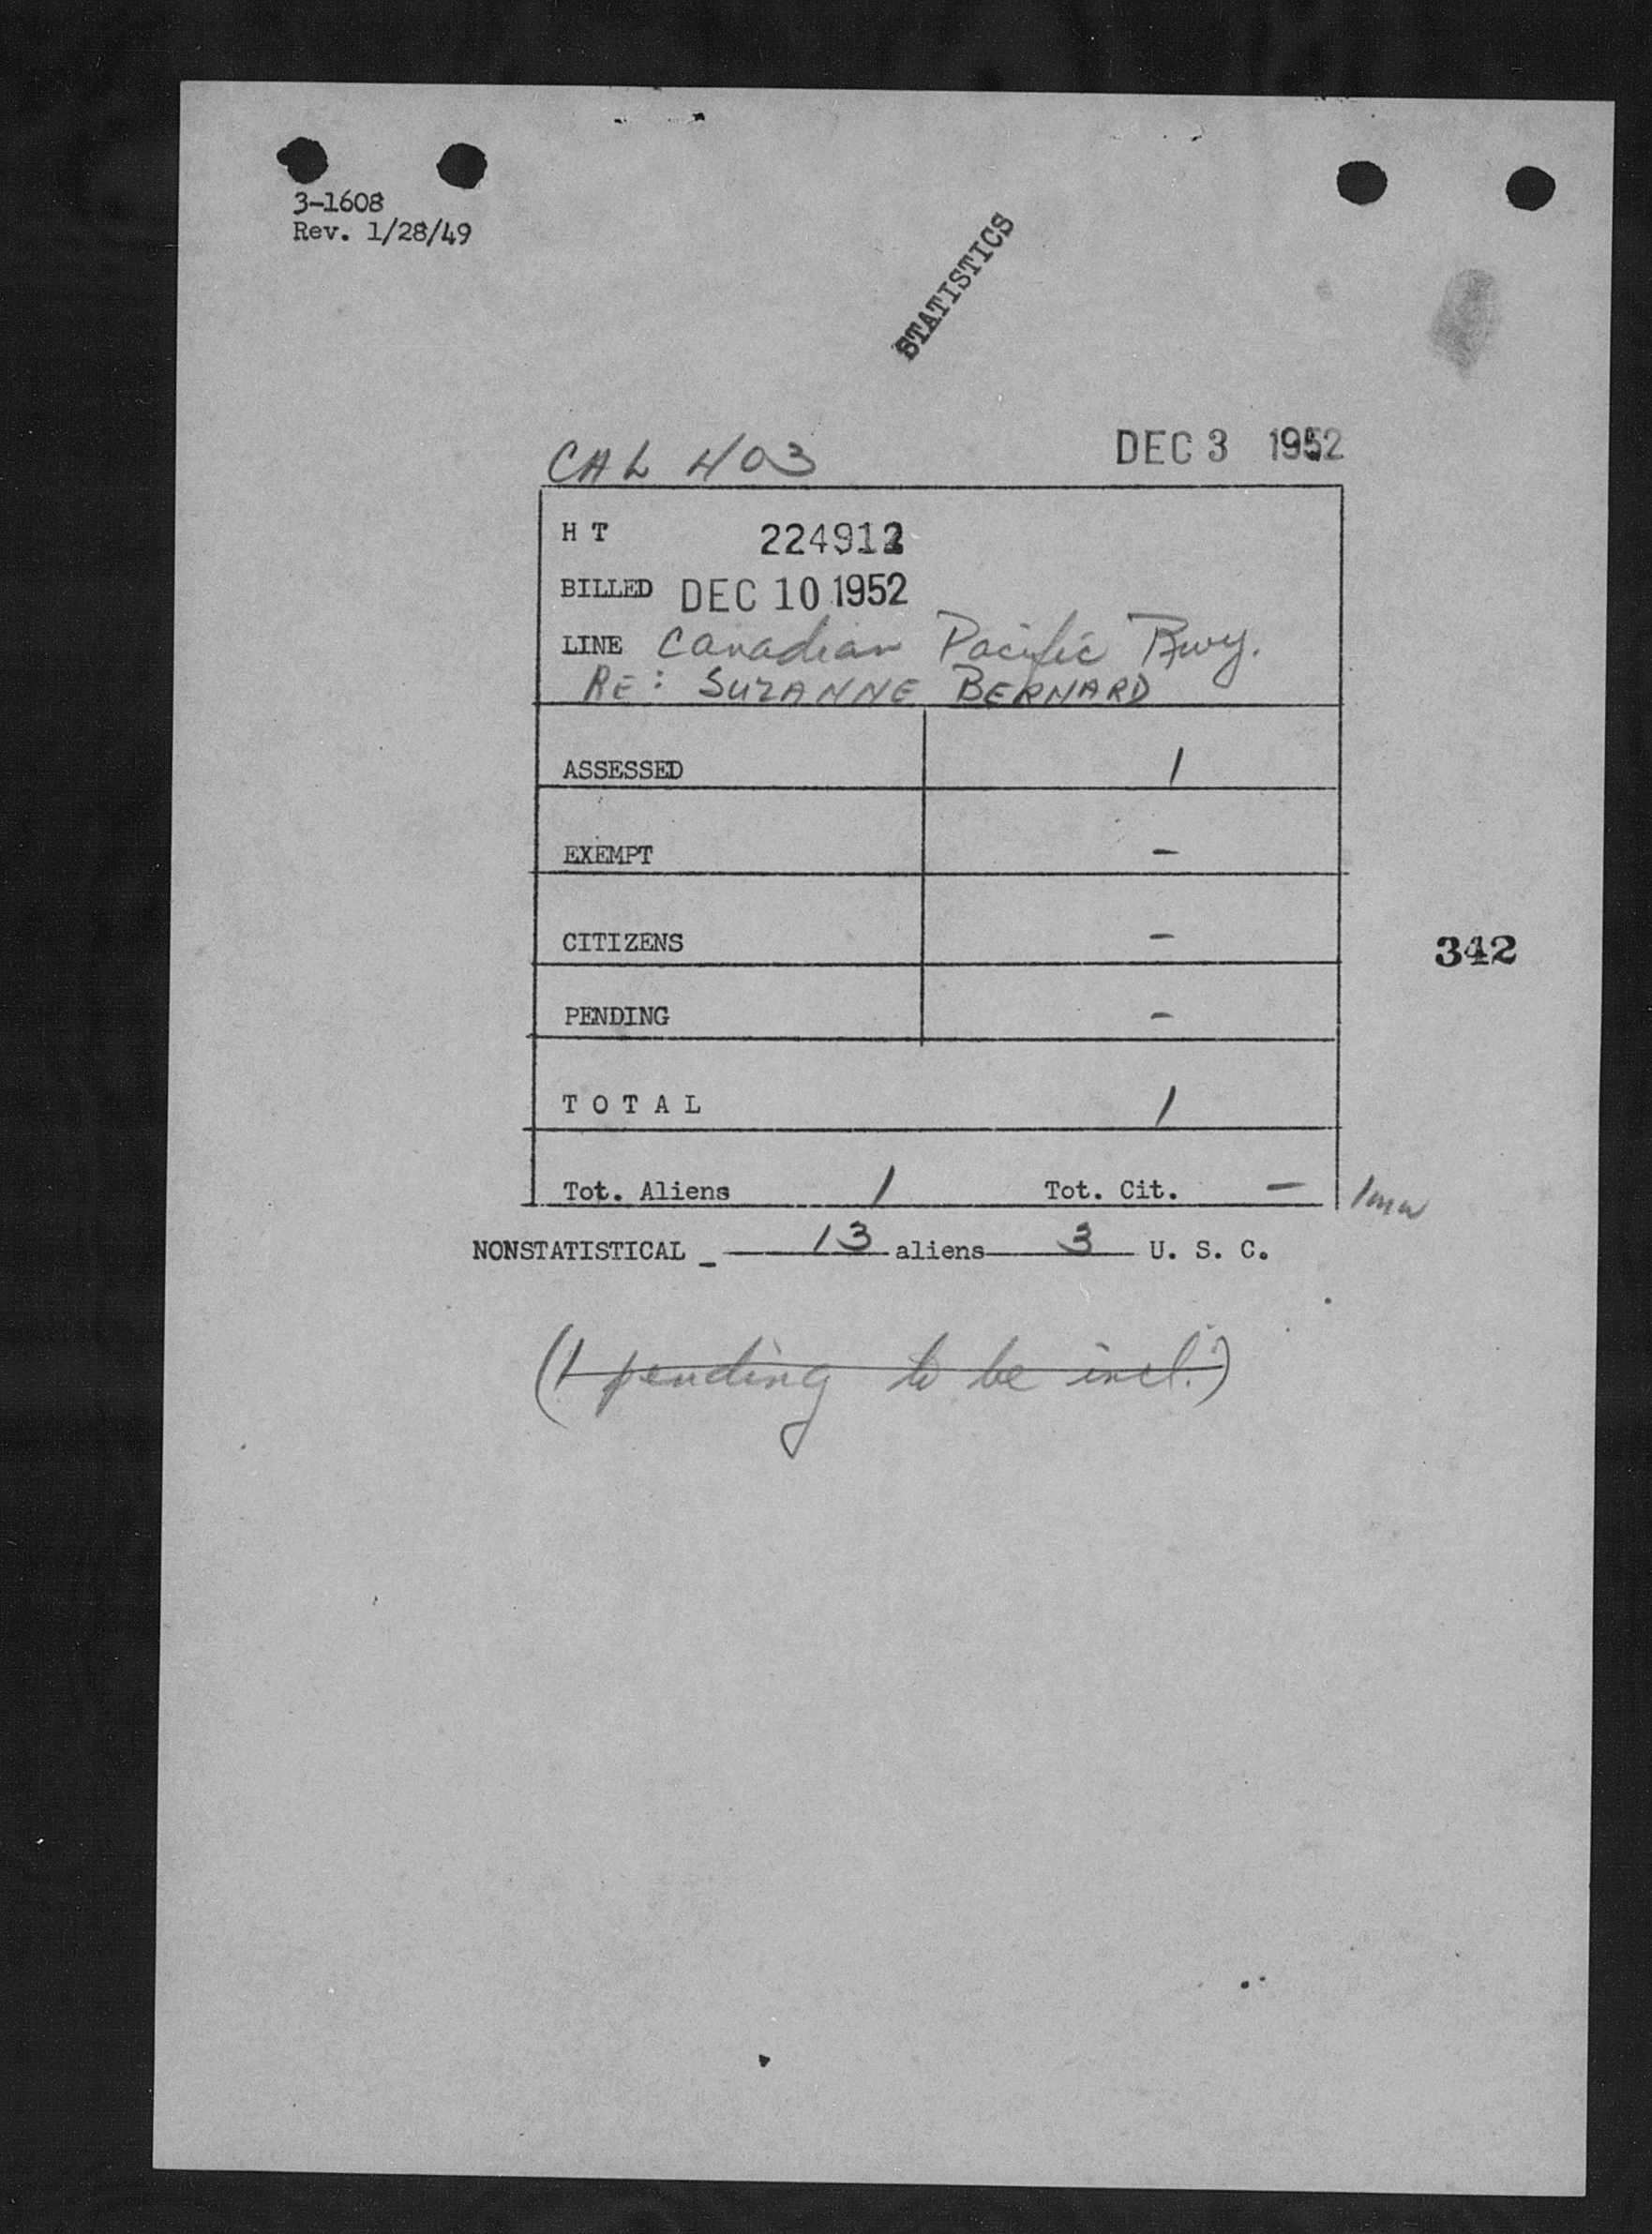 3-1608
Rev. 1/28/49
STATISTICS
CAL 403 DEC 3 1952
H T 224912
BILLED DEC 10 1952
LINE Canadian Pacific Rwy.
RE: SUZANNE BERNARD
ASSESSED 1
EXEMPT -
CITIZENS -
342
PENDING -
T O T A L 1
Tot. Aliens 1 Tot. Cit. -
NONSTATISTICAL - 13 aliens 3 U. S. C.
(1 pending to be incl.)